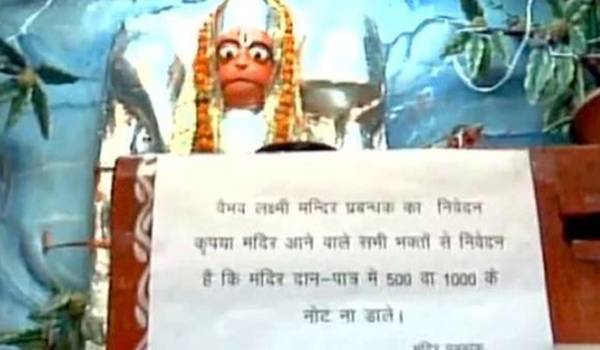 वैभव लक्ष्मी मन्दिर प्रबन्धक का निवेदन
कृपया मंदिर आने वाले सभी भक्तों से निवेदन
है कि मंदिर दान-पात्र मे 500 वा 1000 के
नोट ना डाले।
मंदिर